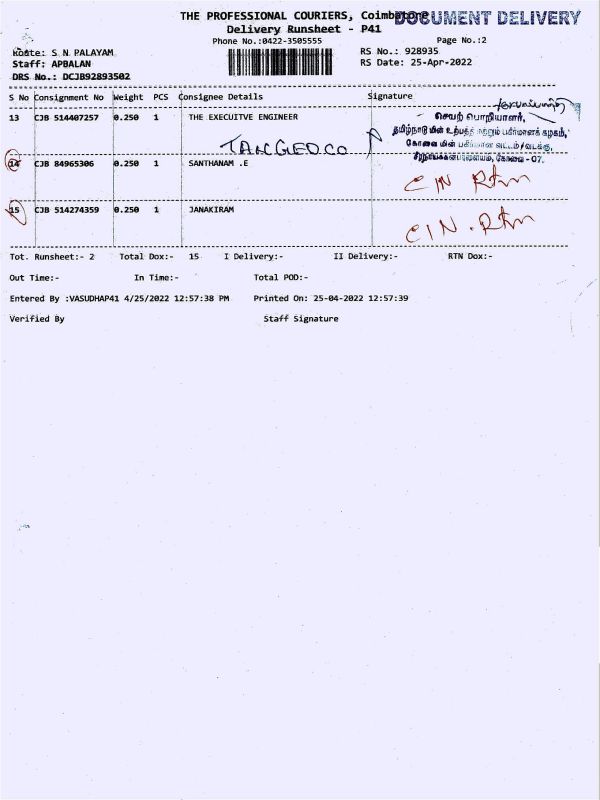 THE PROFESSIONAL COURIERS, Coimbatore
DOCUMENT DELIVERY
Delivery Runsheet - P41
Phone No.:0422-3505555
Page No.:2
Route: S N PALAYAM
RS No.: 928935
Staff: APBALAN
RS Date: 25-Apr-2022
DRS No.: DCJB92893502
S No Consignment No Weight PCS Consignee Details Signature
13 CJB 514407257 0.250 1 THE EXECUITVE ENGINEER
செயற் பொறியாளர்,
தமிழ்நாடு மின் உற்பத்தி மற்றும் பகிர்மானக் கழகம்,
TANGEDCO
கோவை மின் பகிர்மான வட்டம்/வடக்கு,
சீரநாயக்கன்பாளையம், கோவை - 07.
14 CJB 84965306 0.250 1 SANTHANAM .E
CIN Rtn
15 CJB 514274359 0.250 1 JANAKIRAM
CIN. Rtn
Tot. Runsheet:- 2 Total Dox:- 15 I Delivery:- II Delivery:- RTN Dox:-
Out Time:- In Time:- Total POD:-
Entered By :VASUDHAP41 4/25/2022 12:57:38 PM Printed On: 25-04-2022 12:57:39
Verified By Staff Signature